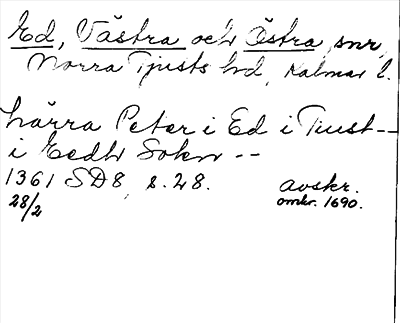 Ed, Västra och Östra, snr,
Norra Tjusts hd, Kalmar l.
härra Peter i Ed i Tiust --
i Eedh Sokn --
1361 SD8, s. 28. avskr.
28/2 omkr. 1690.